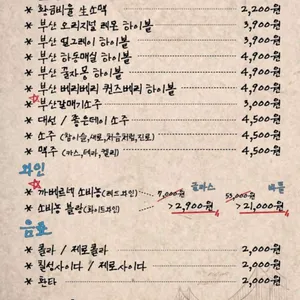 * 황금비율 生소맥 2,200원
* 부산 오리지널 레몬 하이볼 3,900원
* 부산 얼그레이 하이볼 3,900원
* 부산 하동매실 하이볼 4,900원
* 부산 유자몽 하이볼 4,900원
* 부산 베리베리 쿼즈베리 하이볼 4,900원
* 부산갈매기소주 3,000원
* 대선 / 좋은데이 소주 4,500원
* 소주 (참이슬,새로,처음처럼,진로) 4,500원
* 맥주 (카스,테라,켈리) 4,500원
와인 글라스 바틀
* 까베르네 소비뇽(레드와인) 7,000원 53,000원
* 소비뇽 블랑(화이트와인) >2,900원 >21,000원
음료
* 콜라 / 제로콜라 2,000원
* 칠성사이다 / 제로사이다 2,000원
* 환타 2,000원